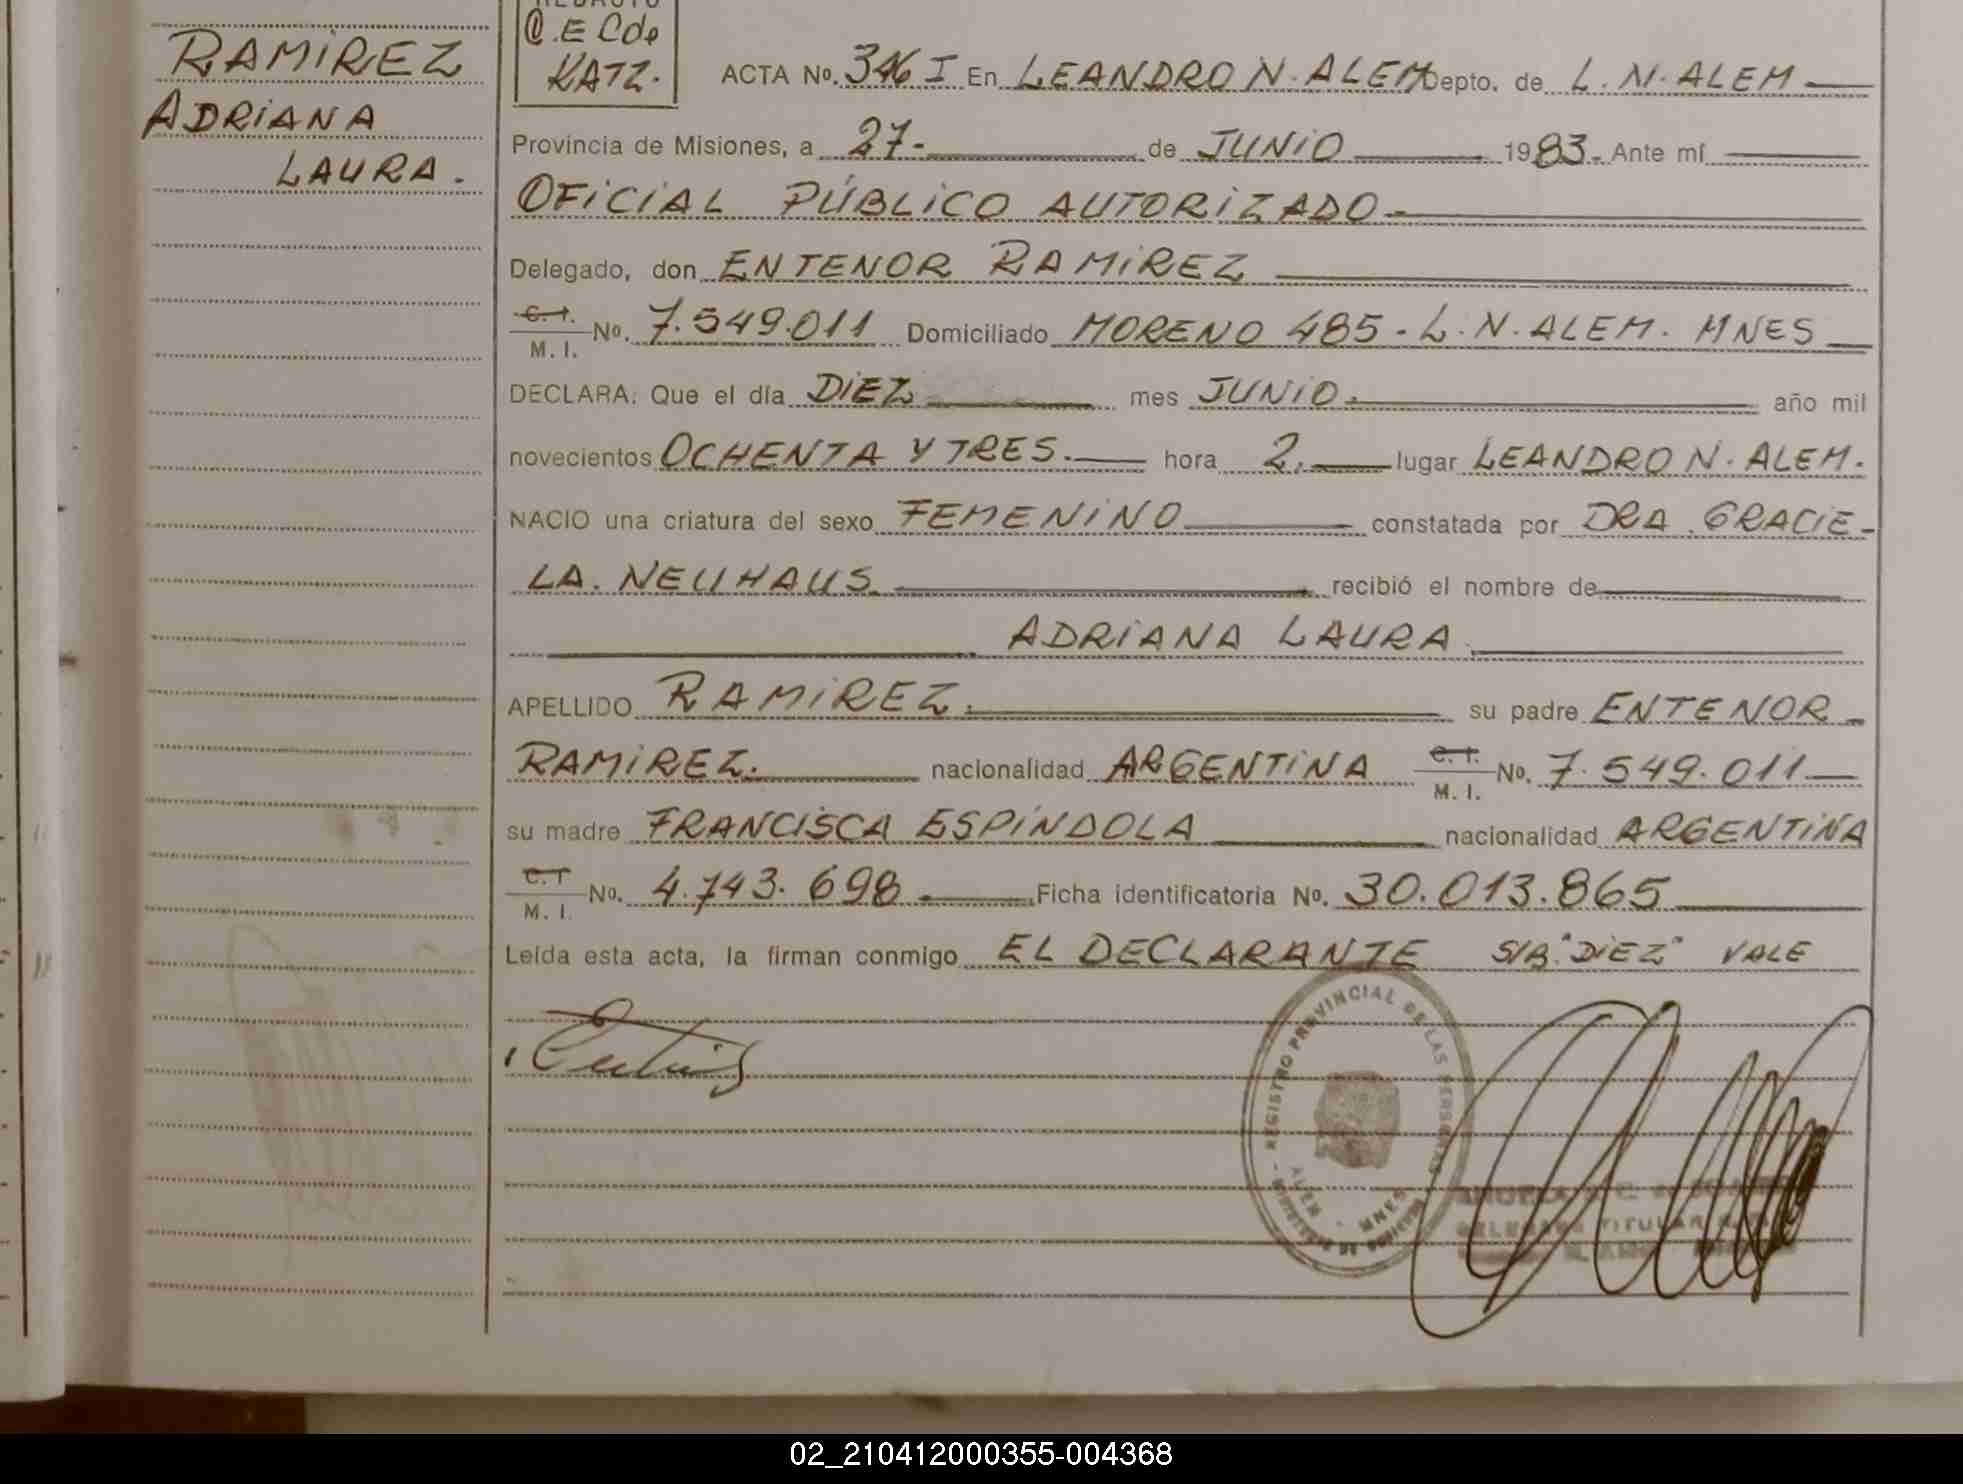 RAMIREZ
ADRIANA
LAURA.
REDACTO
C.E Cde
KATZ.
ACTA No. 346 I En LEANDRO N. ALEM Depto. de L. N. ALEM
Provincia de Misiones, a 27. de JUNIO 1983. Ante mí
OFICIAL PÚBLICO AUTORIZADO
Delegado, don ENTENOR RAMIREZ
C. I.
M. I. No. 7.549.011 Domiciliado MORENO 485. L. N. ALEM. MNES
DECLARA: Que el día DIEZ mes JUNIO. año mil
novecientos OCHENTA Y TRES. hora 2. lugar LEANDRO N. ALEM.
NACIO una criatura del sexo FEMENINO constatada por DRA. GRACIE-
LA. NEUHAUS. recibió el nombre de
ADRIANA LAURA.
APELLIDO RAMIREZ. su padre ENTENOR
RAMIREZ. nacionalidad ARGENTINA C. I. M. I. No. 7.549.011
su madre FRANCISCA ESPÍNDOLA nacionalidad ARGENTINA
C. I
M. I. No. 4.743.698 Ficha identificatoria No. 30.013.865
Leída esta acta, la firman conmigo EL DECLARANTE S/B. "DIEZ" VALE
REGISTRO PROVINCIAL DE LAS PERSONAS
ALEM - MNES
DELEGADA TITULAR
02_210412000355-004368